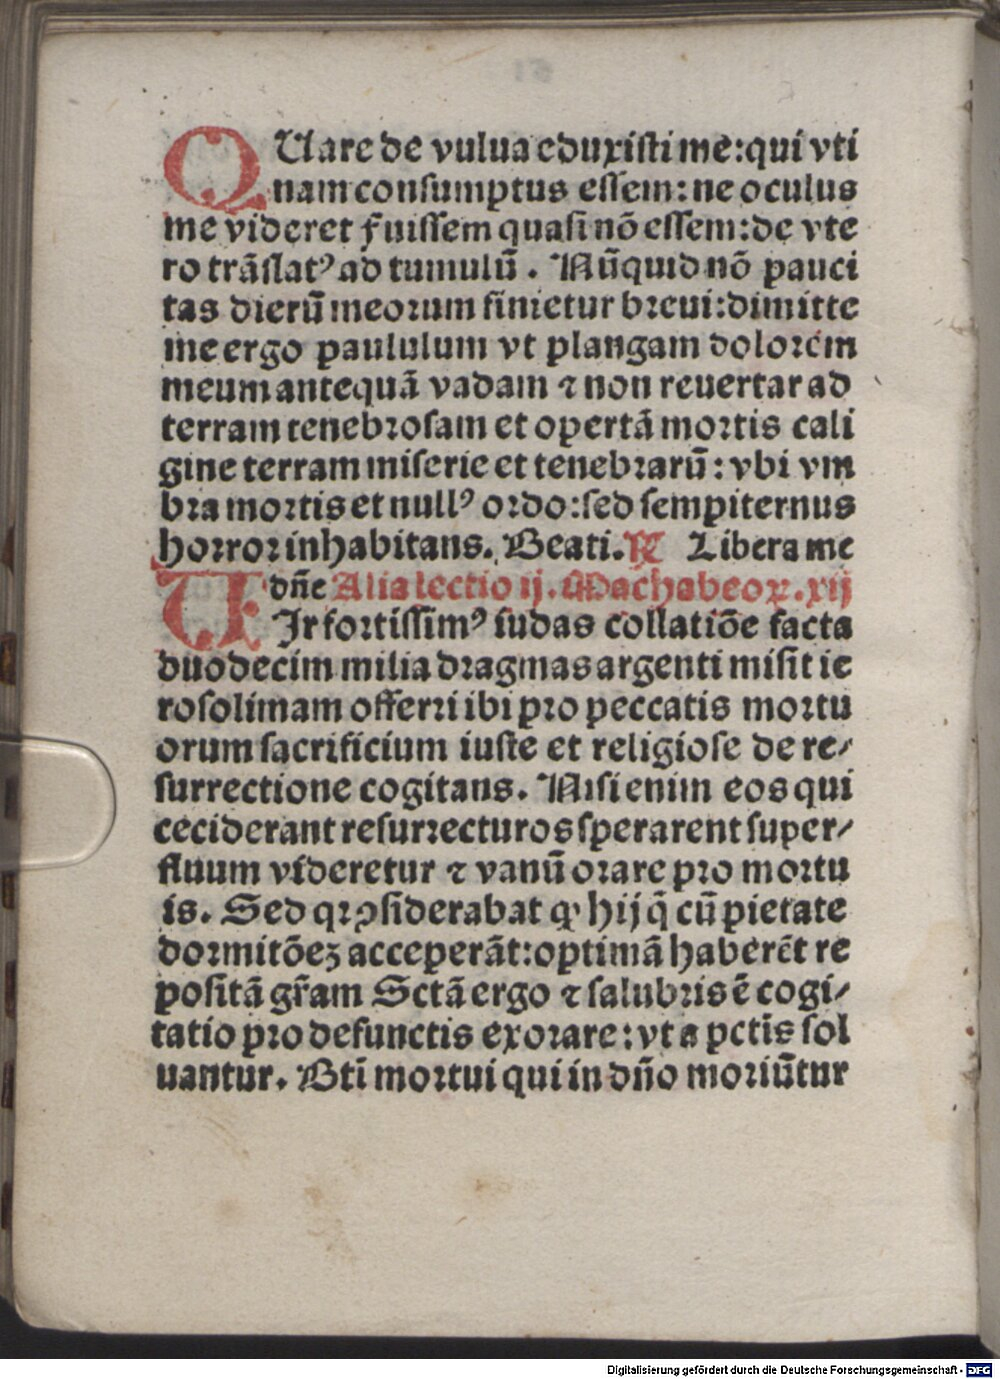 QUare de vulua eduxisti me: qui vti
nam consumptus essem: ne oculus
me videret fuissem quasi nō essem: de vte
ro trāslatꝰ ad tumulū. Nūquid nō pauci
tas dierū meorum finietur breui: dimitte
me ergo paululum vt plangam dolorem
meum antequā vadam ⁊ non reuertar ad
terram tenebrosam et opertā mortis cali
gine terram miserie et tenebrarū: vbi vm
bra mortis et nullꝰ ordo: sed sempiternus
horror inhabitans. Beati. ℟ Libera me
dn̄e Alia lectio ij. Machabeoꝝ. xij
VIr fortissimꝰ iudas collatiōe facta
duodecim milia dragmas argenti misit ie
rosolimam offerri ibi pro peccatis mortu
orum sacrificium iuste et religiose de re/
surrectione cogitans. Nisi enim eos qui
ceciderant resurrecturos sperarent super/
fluum videretur ⁊ vanū orare pro mortu
is. Sed qꝛ ꝯsiderabat ꝙ hij q̄ cū pietate
dormitōeꝫ acceperāt: optimā haberēt re
positā gr̄am Sctā ergo ⁊ salubris ē cogi/
tatio pro defunctis exorare: vt a pctīs sol
uantur. Btī mortui qui in dn̄o moriūtur
Digitalisierung gefördert durch die Deutsche Forschungsgemeinschaft - DFG